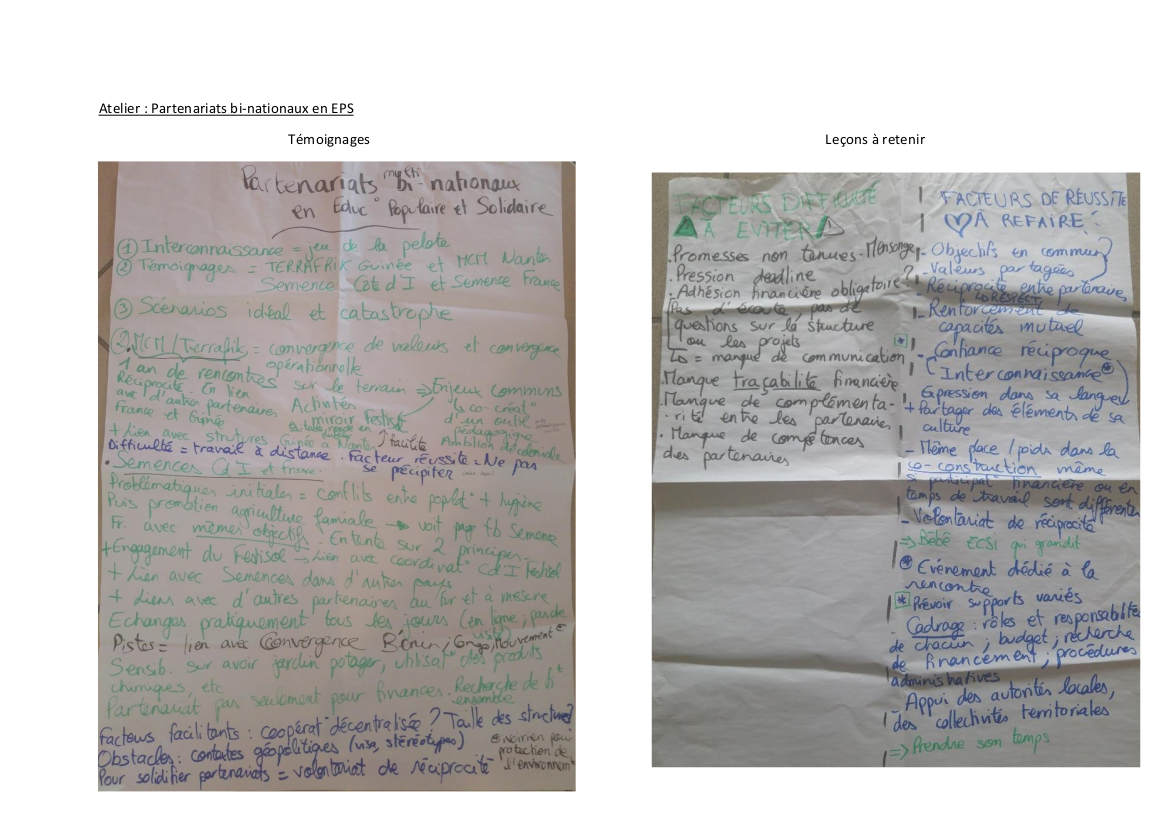 Atelier : Partenariats bi-nationaux en EPS
Témoignages
Partenariats multi bi-nationaux
en Educ° Populaire et Solidaire
① Interconnaissance = jeu de la pelote
② Témoignages = TERRAFRIK Guinée et MCM Nantes
Semence Côte d'I et Semence France
③ Scénarios idéal et catastrophe
②. MCM / Terrafrik = convergence de valeurs et convergence
opérationnelle
1 an de rencontres sur le terrain => Enjeux communs
Réciprocité - En lien
avec d'autres partenaires
France et Guinée
Activités
miroir Festisol
Guinée à Nantes
↳ co-créat°
d'un outil
pédagogique
Ambition décoloniale
+ lien avec
↑ facilité
Difficulté = travail à distance. Facteur réussite = Ne pas
se précipiter
. Semences Cd'I et France.
Problématiques initiales = conflits entre poplat° + hygiène
Puis promotion agriculture familiale → voit page fb Semence
Fr. avec mêmes objectifs. Entente sur 2 principes.
+ Engagement du Festisol → Lien avec coordinat° Cd'I Festisol
+ Lien avec Semences dans d'autres pays
+ Liens avec d'autres partenaires au fur et à mesure
Echanges pratiquement tous les jours (en ligne,
Pistes = lien avec Convergence Bénin, Congo, Mouvement
Sensib. sur avoir jardin potager, utilisat° des produits
chimiques, etc
Partenariat pas seulement pour finances. Recherche de f^t
ensemble
Facteurs facilitants : coopérat° décentralisée ? Taille des structures ?
Obstacles : contextes géopolitiques (visa, stéréotypes)
pour
protection de
l'environnement
Pour solidifier partenariats = volontariat de réciprocité
Leçons à retenir
FACTEURS DIFFICULTÉ
À ÉVITER
. Promesses non tenues - Mensonge
. Pression deadline
. Adhésion financière obligatoire ?
Pas d'écoute, pas de
questions sur la structure
ou les projets
↳ = manque de communication
. Manque traçabilité financière
. Manque de complémenta-
-rité entre les partenaires
. Manque de compétences
des partenaires
FACTEURS DE RÉUSSITE
À REFAIRE !
- Objectifs en commun
- Valeurs partagées
- Réciprocité entre partenaires
↳ RESPECT
- Renforcement de
capacités mutuel
- Confiance réciproque
(Interconnaissance)
Expression dans sa langue
+ Partager des éléments de sa
culture
- Même place / poids dans la
co-construction même
si participat° financière ou en
temps de travail sont différentes
- Volontariat de réciprocité
=> Bébé ECSI qui grandit
* Evénement dédié à la
rencontre
* Prévoir supports variés
- Cadrage : rôles et responsabilités
de chacun ; budget ; recherche
de financement ; procédures
administratives
- Appui des autorités locales,
des collectivités territoriales
=> Prendre son temps